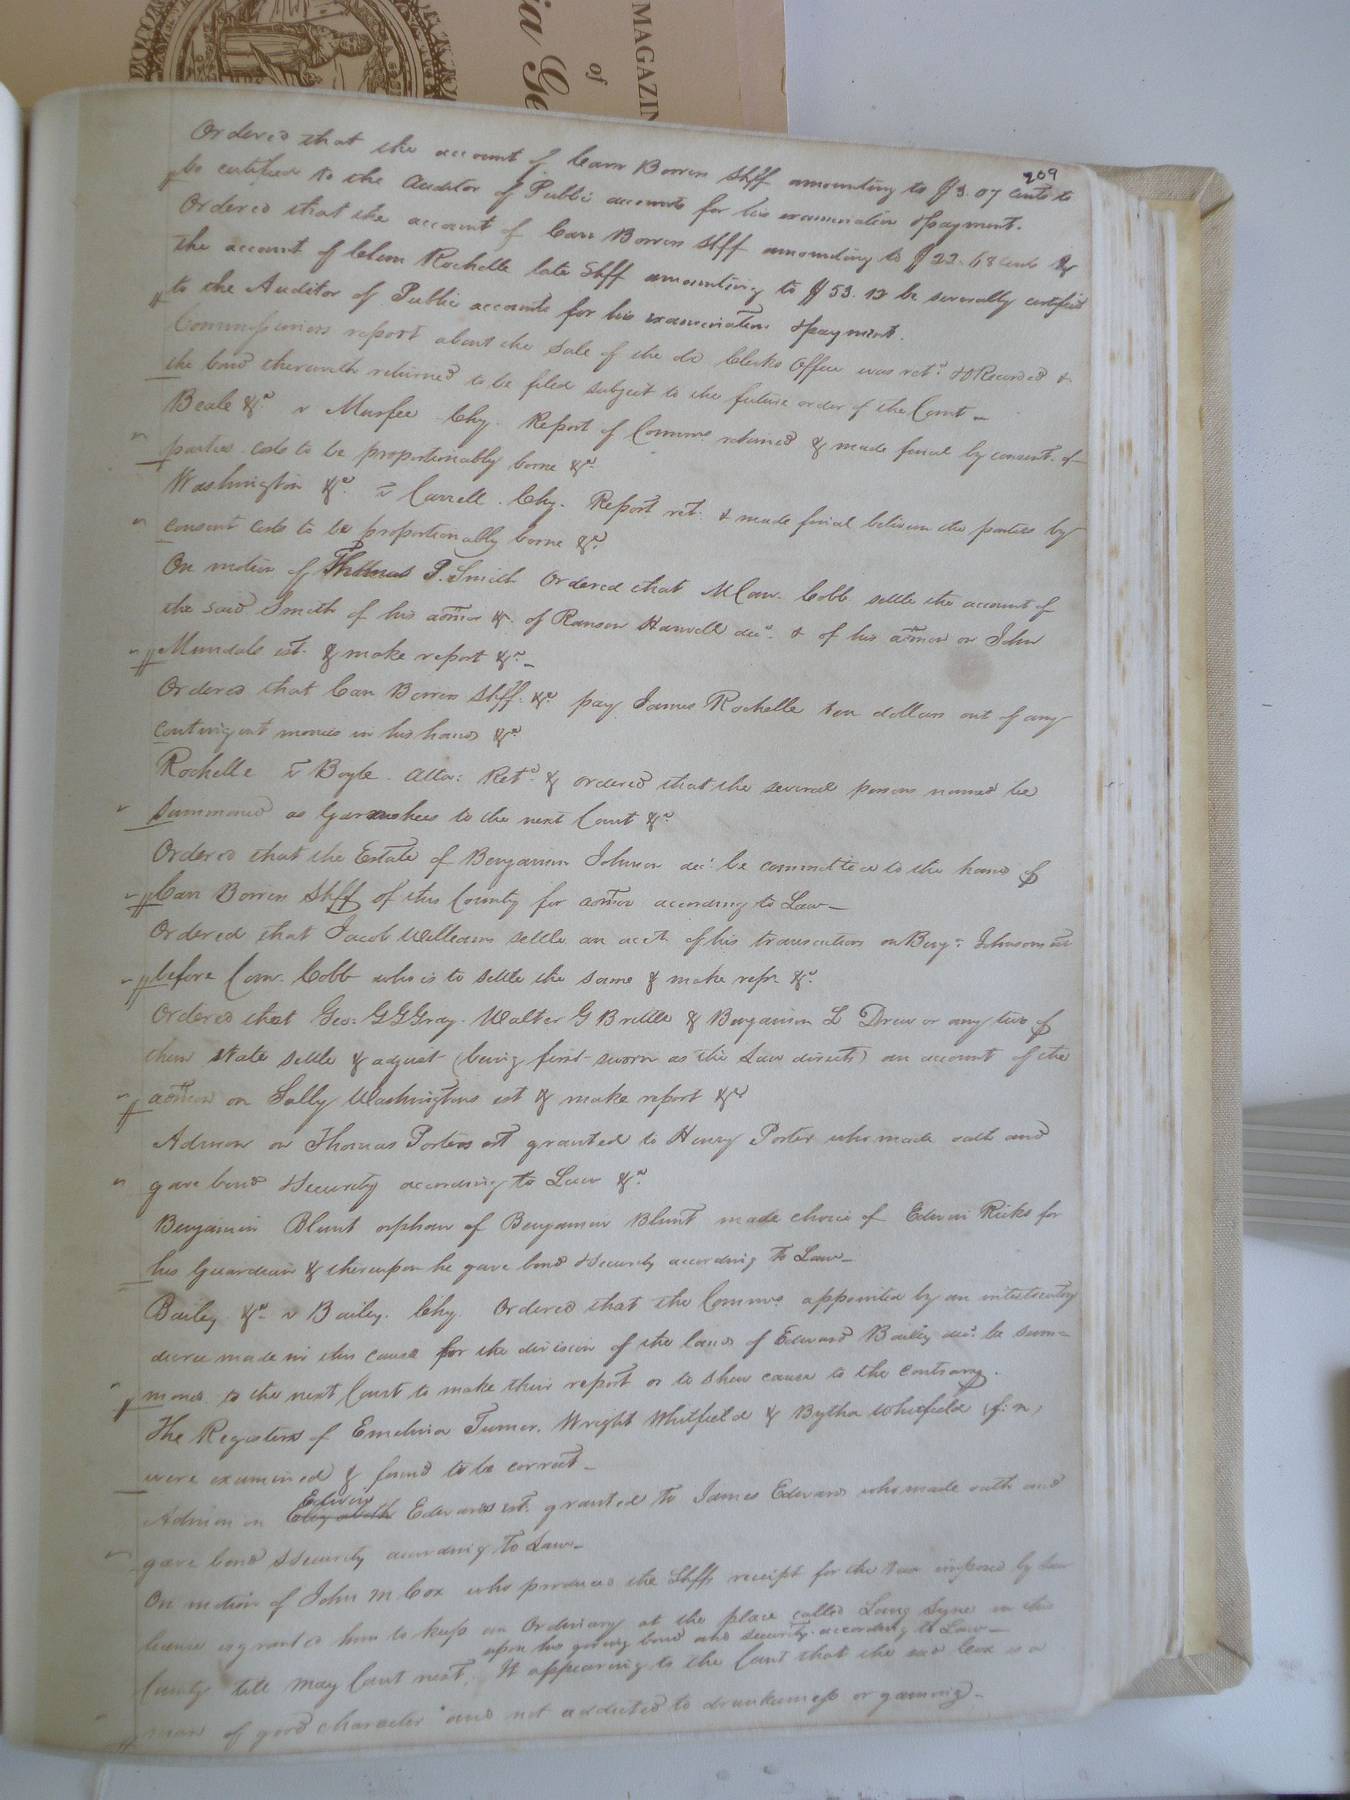 MAGAZIN
of
ia Ge
209
Ordered that the account of Carr Bowers Shff amounting to $3.07 cents to
be certified to the Auditor of Public accounts for his examination & payment.
Ordered that the account of Carr Bowers Shff amounting to $22.68 cents &
the account of Clem Rochelle late Shff amounting to $53.12 be severally certified
to the Auditor of Public accounts for his examination & payment.
Commissioners report about the Sale of the old Clerks Office was retd. & O Recorded &
the bond therewith returned to be filed subject to the future order of the Court
Beale &c. v Murfee Chy. Report of Commrs returned & made final by consent of
parties costs to be proportionably borne &c.
Washington &c. v Carrell. Chy. Report ret. & made final between the parties by
consent costs to be proportionably borne &c.
On motion of Thomas P. Smith Ordered that Com. Cobb settle the account of
the said Smith of his admon &c. of Ranson Harwell decd. & of his admon on John
est. & make report &c.
Ordered that Carr Bowers Shff. &c. pay James Rochelle ten dollars out of any
contingent monies in his hands &c
Rochelle v Boyle. Atta: Retd. & ordered that the several persons named be
Summoned as Garnishees to the next Court &c.
Ordered that the Estate of Benjamin Johnson decd. be committed to the hands of
Carr Bowers Shff of this County for admon according to Law
Ordered that Jacob Williams settle an acct. of his transaction on Benj: Johnsons est
before Com. Cobb who is to settle the same & make rept. &c.
Ordered that Geo: G G Gray. Walter G Brittle & Benjamin L Drew or any two of
them state settle & adjust (being first sworn as the Law directs) an account of the
admon on Sally Washingtons est & make report &c
Admon on Thomas Porters est granted to Henry Porter who made oath and
gave bond & Security according to Law &c.
Benjamin Blunt orphan of Benjamin Blunt made choice of Edwin Ricks for
his Guardian & thereupon he gave bond & security according to Law
Bailey &c. v Bailey. Chy. Ordered that the Commrs appointed by an interlocutory
decree made in this cause for the division of the lands of Edward Bailey decd. be sum-
moned to the next Court to make their report or to shew cause to the contrary.
The Registers of Emelina Turner. Wright Whitfield & Bytha Whitfield (f: n)
were examined & found to be correct
Edwin
Admon on Elizabeth Edwards est. granted to James Edwards who made oath and
gave bond & security according to Law
On motion of John M Cox who produced the Shffs receipt for the tax imposed by Law
license is granted him to keep an Ordinary at the place called Lang Syne in this
upon his giving bond and security according to Law
County till May Court next. It appearing to the Court that the said Cox is a
man of good character and not addicted to drunkenness or gaming